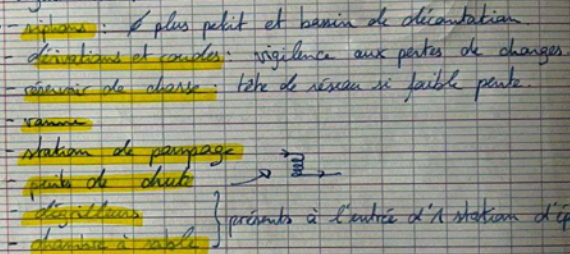 - siphons : ø plus petit et bassin de décantation
- dérivations et coudes : vigilance aux pertes de charges.
- réservoir de chasse : tête de réseau si faible pente.
- vanne
- station de pompage
- puits de chute
- dégrilleurs
- chambre à sable } présents à l'entrée d'1 station d'ép